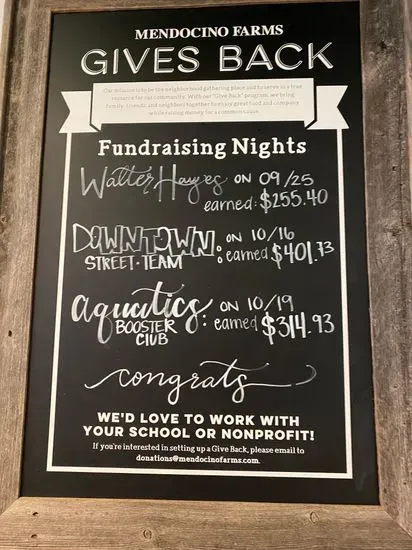 MENDOCINO FARMS
GIVES BACK
Our mission is to be the neighborhood gathering place and to serve as a true
resource for our community. With our "Give Back" program, we bring
family, friends, and neighbors together to enjoy great food and company
while raising money for a common cause.
Fundraising Nights
Walter Hayes ON 09/25
earned: $255.40
DOWNTOWN: ON 10/16
STREET-TEAM earned $401.73
aquatics: ON 10/19
BOOSTER earned $314.93
CLUB
congrats
WE'D LOVE TO WORK WITH
YOUR SCHOOL OR NONPROFIT!
If you're interested in setting up a Give Back, please email to
donations@mendocinofarms.com.